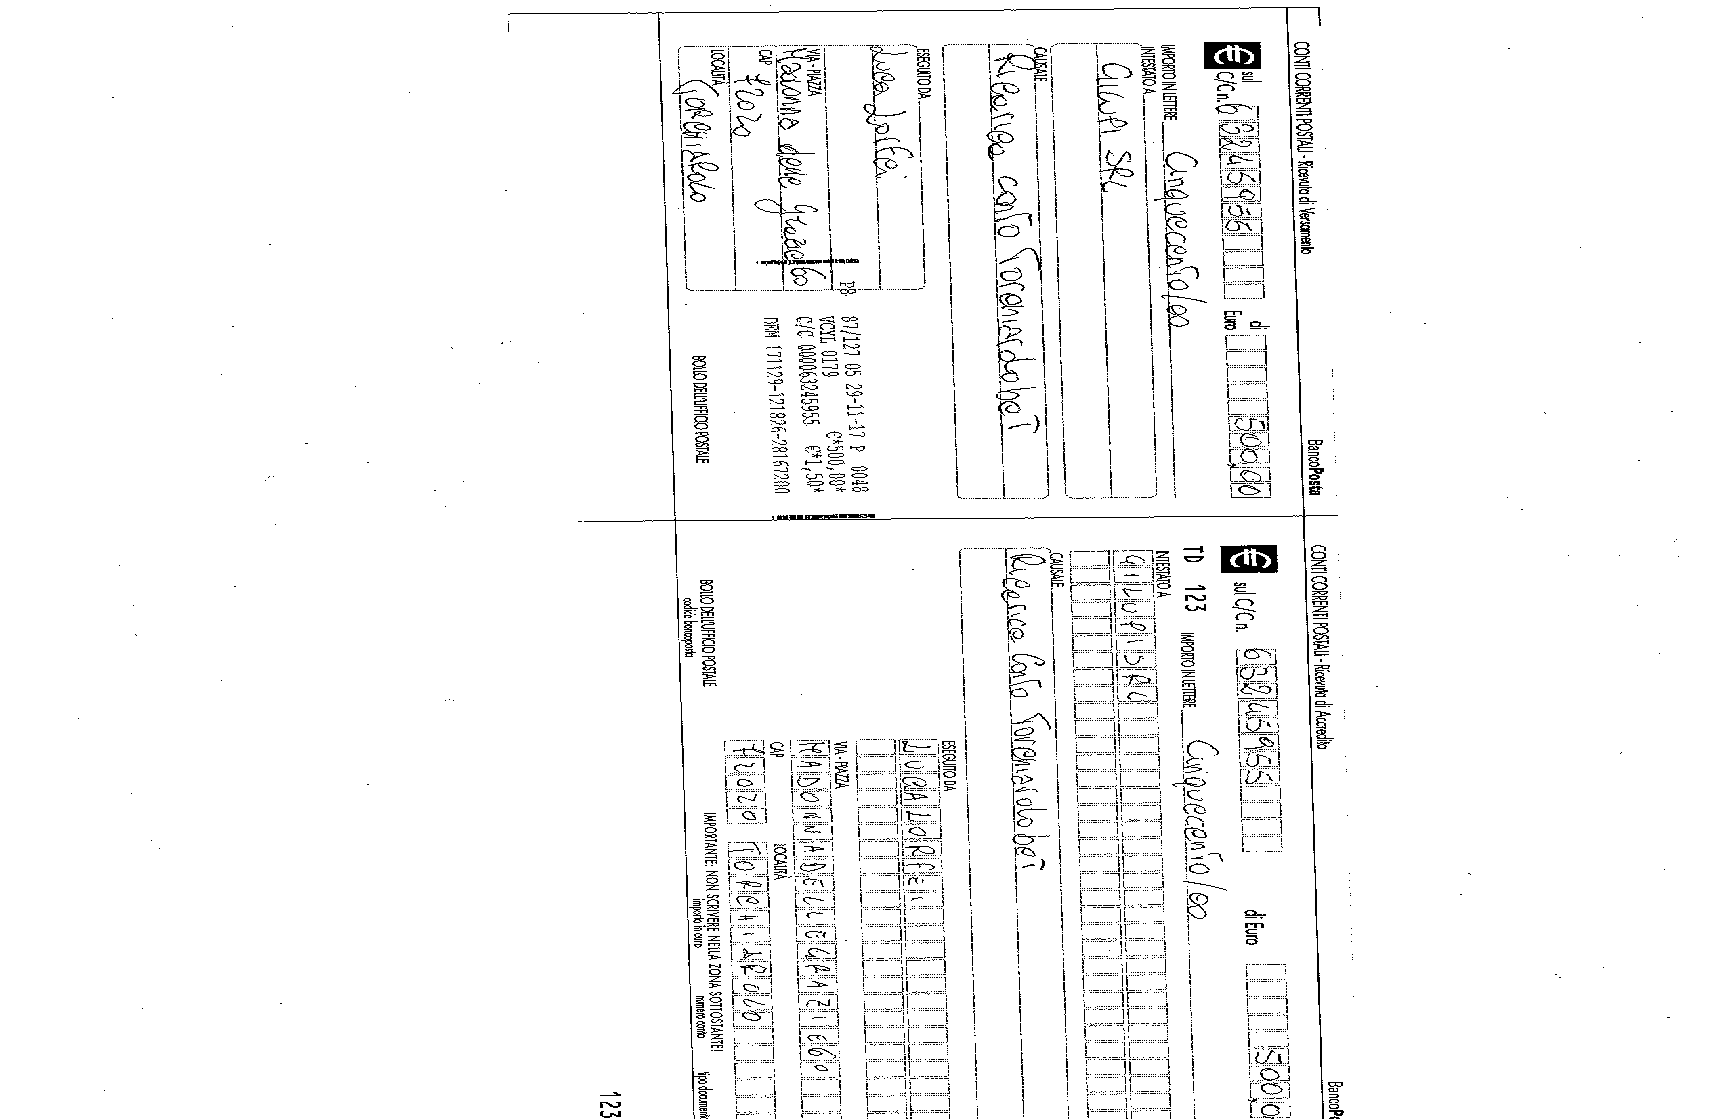 CONTI CORRENTI POSTALI - Ricevuta di Versamento
BancoPosta
€ sul C/C n. 63245955 di Euro 500,00
IMPORTO IN LETTERE Cinquecento/00
INTESTATO A
GILUPI SRL
CAUSALE
Ricarica conto Torchiarolobet
ESEGUITO DA
Luca Lorfei
VIA - PIAZZA
Madonna delle Grazie 60
CAP
72020
LOCALITÀ
TORCHIAROLO
87/127 05 29-11-17 P 0048
VCYL 0179 €*500,00*
C/C 000063245955 €*1,50*
BOLLO DELL'UFFICIO POSTALE
CONTI CORRENTI POSTALI - Ricevuta di Accredito
BancoP
€ sul C/C n. 63245955 di Euro 500,0
TD 123 IMPORTO IN LETTERE Cinquecento/00
INTESTATO A
GILUPI SRL
CAUSALE
Ricarica Conto Torchiarolobet
ESEGUITO DA
LUCA LORFEI
VIA - PIAZZA
MADONNA DELLE GRAZIE 60
CAP LOCALITÀ
72020 TORCHIAROLO
BOLLO DELL'UFFICIO POSTALE
codice bancoposta
IMPORTANTE: NON SCRIVERE NELLA ZONA SOTTOSTANTE!
importo in euro numero conto tipo documen
123